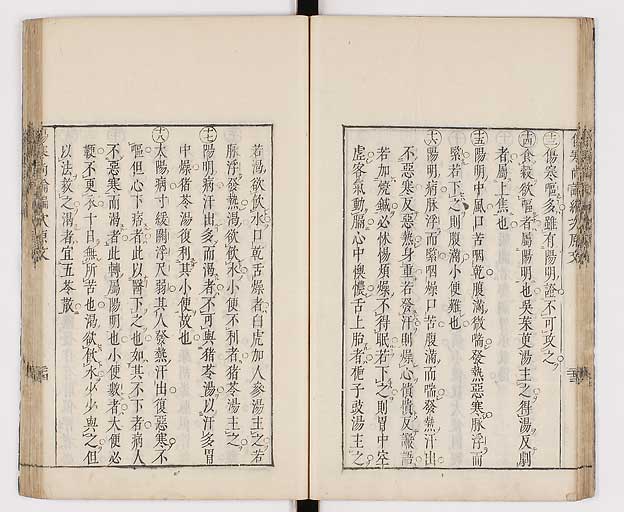 十三傷寒嘔多雖有陽明證不可攻之
十四食穀欲嘔者屬陽明也吳茱萸湯主之得湯反劇
者屬上焦也
十五陽明中風口苦咽乾腹滿微喘發熱惡寒脉浮而
緊若下之則腹滿小便難也
十六陽明病脉浮而緊咽燥口苦腹滿而喘發熱汗出
不惡寒反惡熱身重若發汗則燥心憒憒反讝語
若加燒鍼必怵惕煩燥不得眠若下之則胃中空
虛客氣動膈心中懊憹舌上胎者梔子豉湯主之
若渴欲飲水口乾舌燥者白虎加人參湯主之若
脉浮發熱渴欲飲水小便不利者猪苓湯主之
十七陽明病汗出多而渴者不可與猪苓湯以汗多胃
中燥猪苓湯復利其小便故也
十八太陽病寸緩關浮尺弱其人發熱汗出復惡寒不
嘔但心下痞者此以醫下之也如其不下者病人
不惡寒而渴者此轉屬陽明也小便數者大便必
鞕不更衣十日無所苦也渴欲飲水少少與之但
以法救之渴者宜五苓散